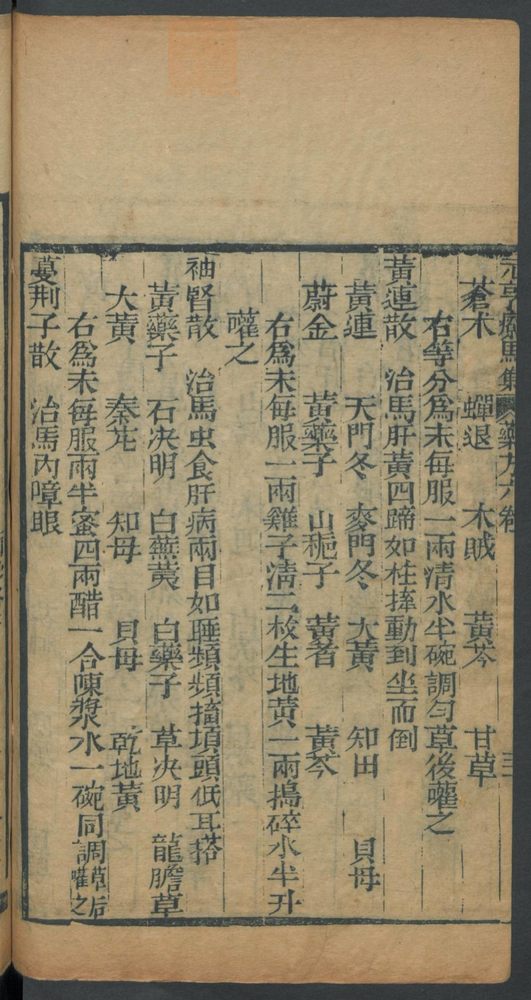 元亨療馬集 藥方六卷 三
蒼木 蟬退 木賊 黃芩 甘草
右等分為末每服一兩清水半碗調勻草後嚾之
黃連散 治馬肝黃四蹄如柱摔動到坐而倒
黃連 天門冬 麥門冬 大黃 知田 貝母
蔚金 黃藥子 山梔子 黃者 黃芩
右為末每服一兩雞子清二枚生地黃二兩搗碎水半升
嚾之
袖腎散 治馬虫食肝病兩目如睡頻頻搐項頭低耳搭
黃藥子 石决明 白蕪荑 白藥子 草决明 龍膽草
大黃 秦艽 知母 貝母 乾地黃
右為末每服兩半蜜四兩醋一合陳漿水一碗同調草后嚾之
蔓荆子散 治馬內嶂眼